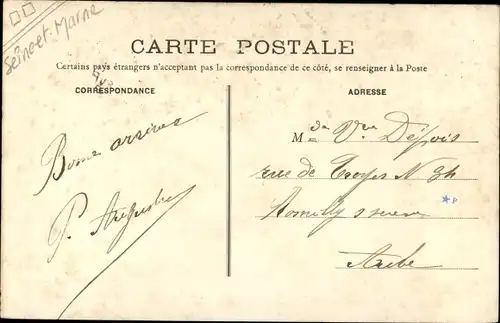 Seine-et-Marne
CARTE POSTALE
Certains pays étrangers n'acceptant pas la correspondance de ce côté, se renseigner à la Poste
CORRESPONDANCE
ADRESSE
Bonne arrivée
P. Auguste
Mde Vve Dépois
rue de Troyes N 34
Romilly s seine
Aube